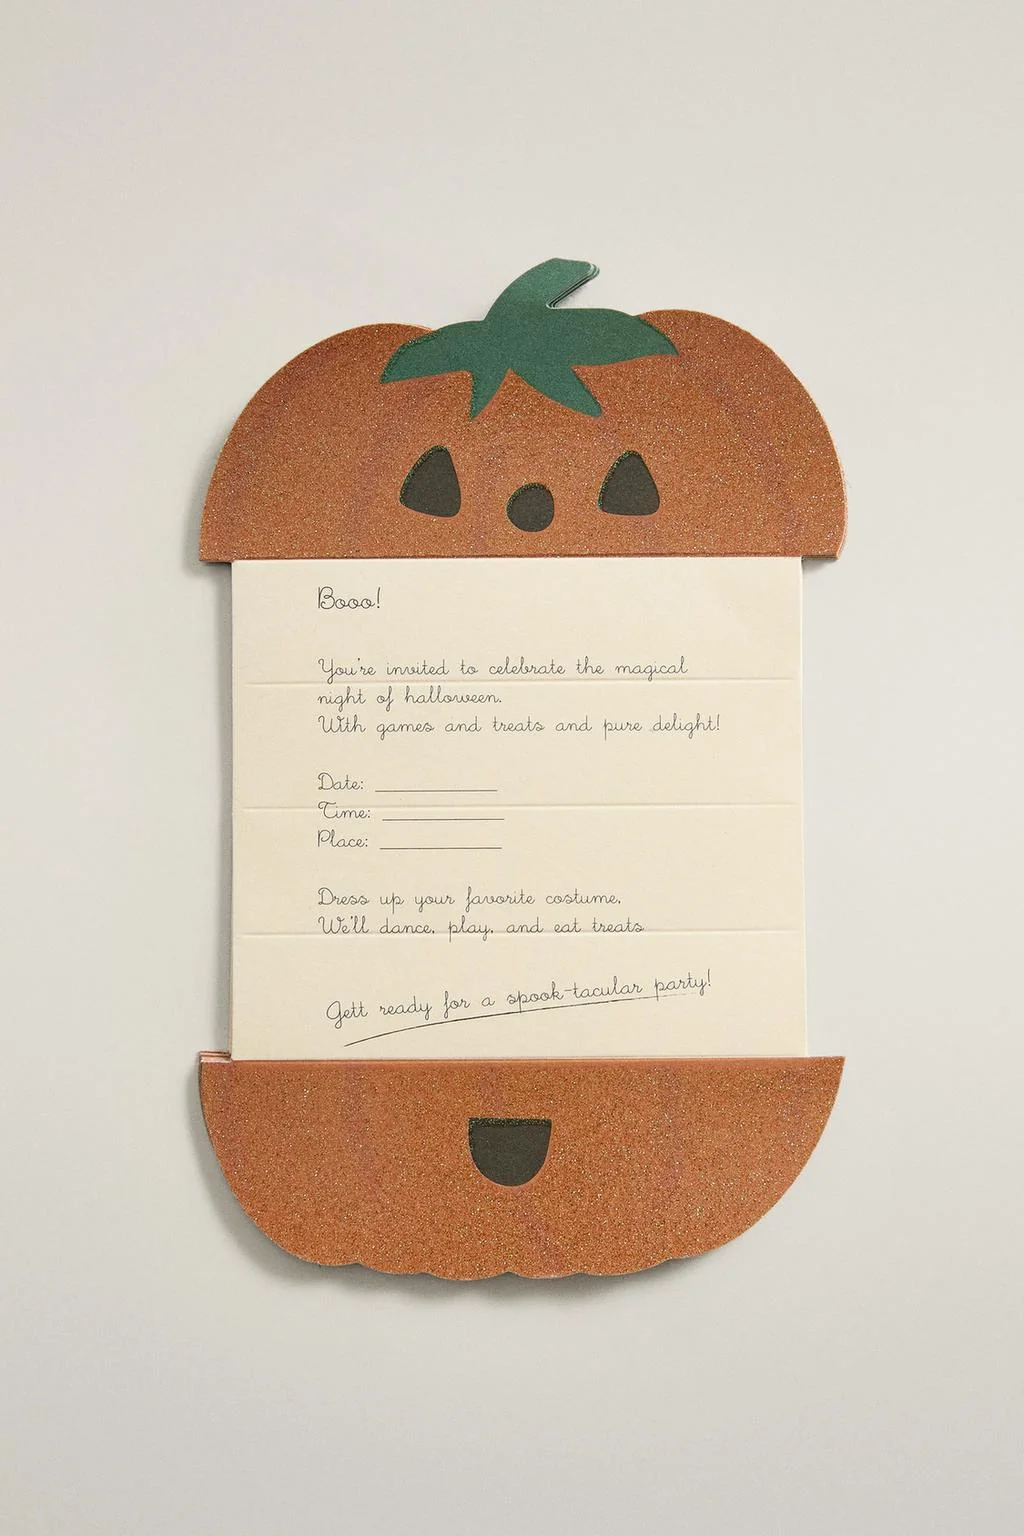 Booo!
You're invited to celebrate the magical
night of halloween.
With games and treats and pure delight!
Date: __________
Time: __________
Place: __________
Dress up your favorite costume,
We'll dance, play, and eat treats
Gett ready for a spook-tacular party!